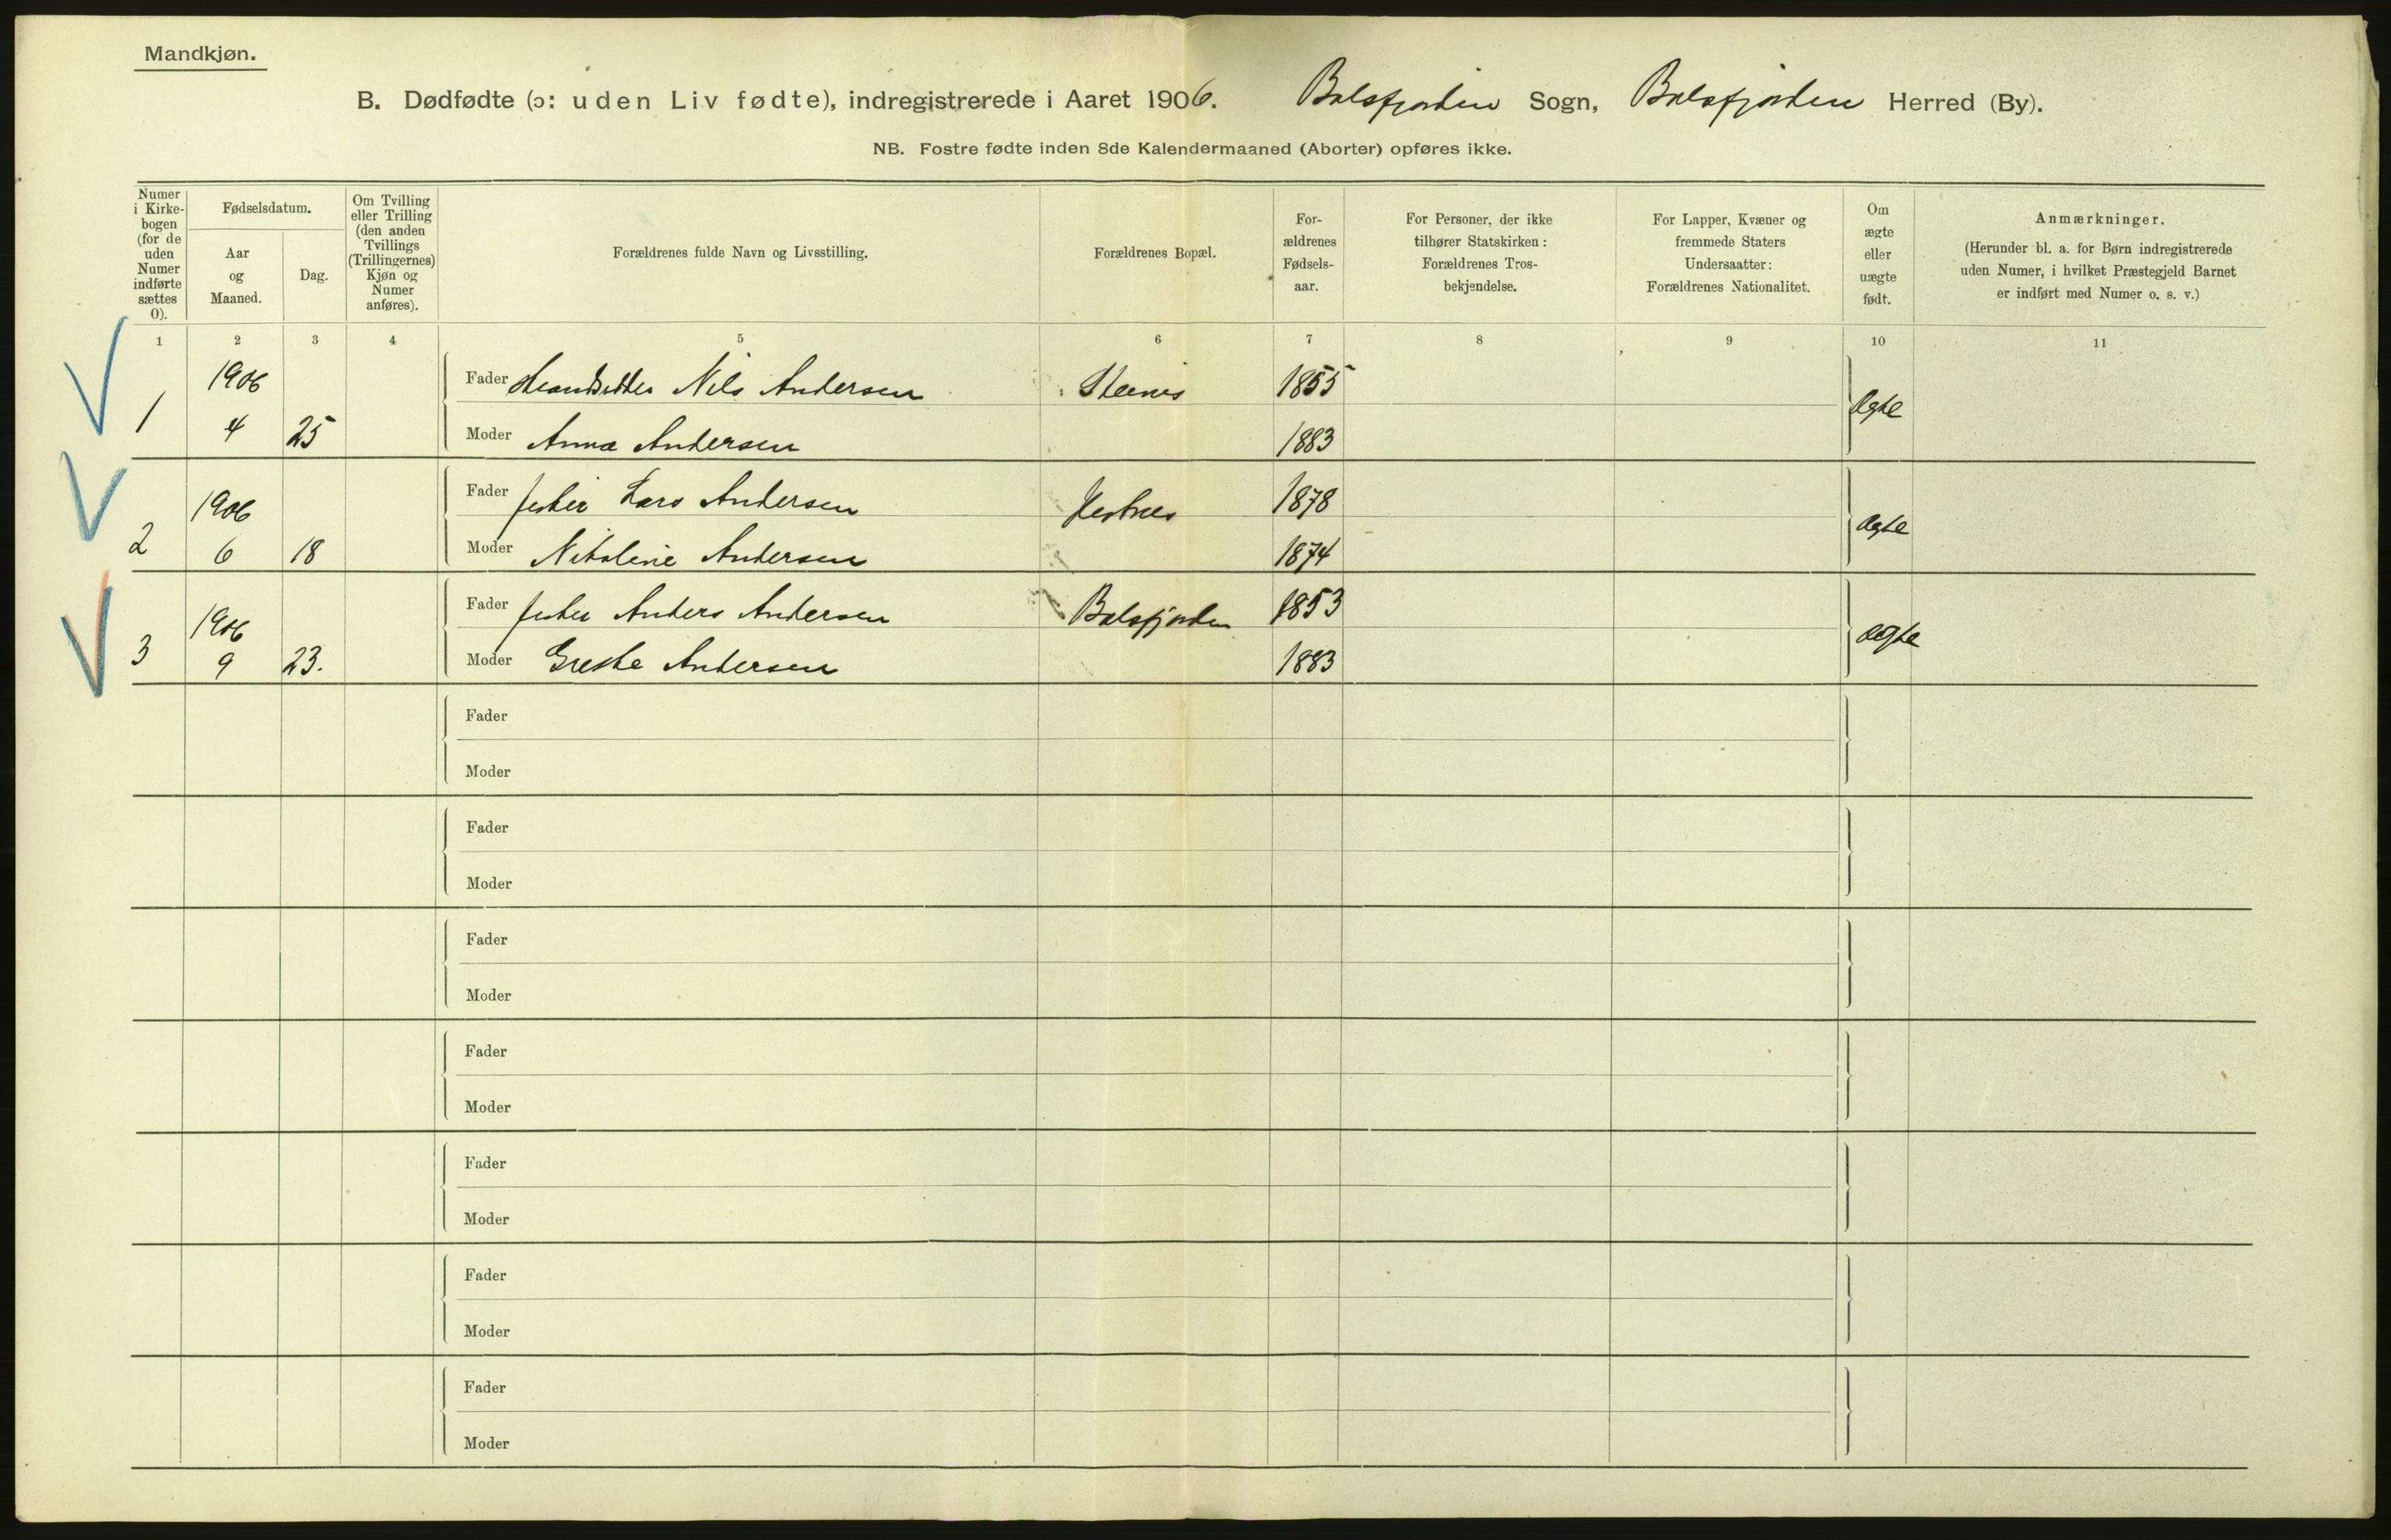 Mandkjøn.
B. Dødfødte (ɔ: uden Liv fødte), indregistrerede i Aaret 1906. Balsfjorden Sogn, Balsfjorden Herred (By).
NB. Fostre fødte inden 8de Kalendermaaned (Aborter) opføres ikke.
Numer i Kirke-bogen (for de uden Numer indførte sættes 0).
Fødselsdatum.
Aar og Maaned.
Dag.
Om Tvilling eller Trilling (den anden Tvillings (Trillingernes) Kjøn og Numer anføres).
Forældrenes fulde Navn og Livsstilling.
Forældrenes Bopæl.
For-ældrenes Fødsels-aar.
For Personer, der ikke tilhører Statskirken: Forældrenes Tros-bekjendelse.
For Lapper, Kvæner og fremmede Staters Undersaatter: Forældrenes Nationalitet.
Om ægte eller uægte født.
Anmærkninger.
(Herunder bl. a. for Børn indregistrerede uden Numer, i hvilket Præstegjeld Barnet er indført med Numer o. s. v.)
1 2 3 4 5 6 7 8 9 10 11
1906 Fader Nils Andersen 1855
1 4 25 Moder Anna Andersen 1883 ægte
1906 Fader Lars Andersen 1878
2 6 18 Moder Nikoline Andersen 1874 ægte
1906 Fader Anders Andersen Balsfjorden 1853
3 9 23. Moder Grethe Andersen 1883 ægte
Fader
Moder
Fader
Moder
Fader
Moder
Fader
Moder
Fader
Moder
Fader
Moder
Fader
Moder